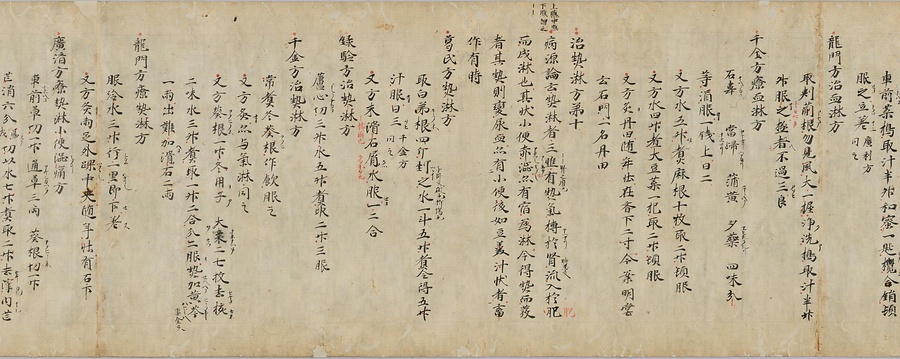 車前葉搗取汁半升和蜜一匙攪合頓
服之立差
龍門方治血淋方
取荊根勿見風大一握淨洗搗取汁半升
千金方療血淋方
石韋 當歸 蒲黃 夕藥 四味分
等酒服一錢上日二
又方水五升煮麻根十枚取二升頓服
又方水四升煮大豆葉一把取二升頓服
又方灸丹田随年壮在齊下二寸
云石門一名丹田
治熱淋方第十
病源論云熱淋者三焦有熱氣搏於腎流入於肥
而成淋也其狀小便赤澁亦有宿為淋今得熱而發
者其熱則變尿血亦有小便後如豆羹汁狀者畜
作有時
葛氏方熱淋方
取白茅根四斤剉之水一斗五升煮令得五升
汁服日三
又方末滑石屑水服一二合
錄驗方治熱淋方
蘆心切一升水五升煮取二升三服
千金方治熱淋方
常煮冬葵根作飲服之
又方灸亦與氣淋同之
又方葵根一升冬用子 大棗二七枚去核
二味水三升煮取一升二合分二服熱加黃芩
一兩出難加滑石二兩
龍門方療熱淋方
服冷水三升行一里即下差
又方灸兩足外踝中央随年壮有石下
廣濟方療熱淋小便澁痛方
車前草切一升 通草三兩 葵根切一升
芒消六分 切以水七升煮取二升去滓内芒